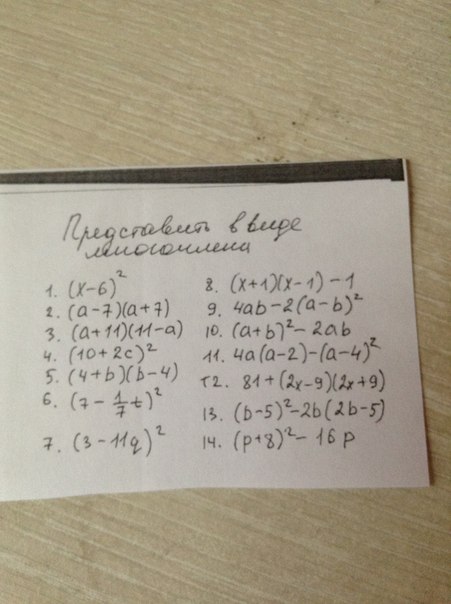 Представить в виде
многочлена
1. (x-6)²
2. (a-7)(a+7)
3. (a+11)(11-a)
4. (10+2c)²
5. (4+b)(b-4)
6. (7-1/7t)²
7. (3-11q)²
8. (x+1)(x-1)-1
9. 4ab-2(a-b)²
10. (a+b)²-2ab
11. 4a(a-2)-(a-4)²
12. 81+(2x-9)(2x+9)
13. (b-5)²-2b(2b-5)
14. (p+8)²-16p